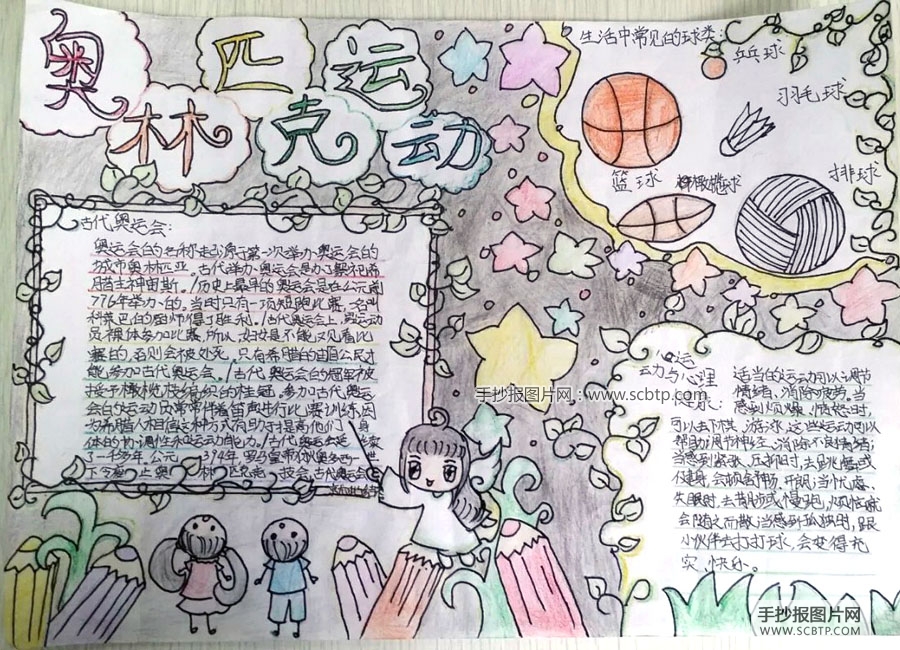 奥匹运
林克动
生活中常见的球类:
乒乓球
羽毛球
篮球
橄榄球
排球
古代奥运会:
奥运会的名称起源于第一次举办奥运会的
城市奥林匹亚。古代举办奥运会是为了祭祀希
腊主神宙斯。历史上最早的奥运会是在公元前
776年举办的。当时只有一项短跑比赛,名叫
科莱巴的厨师得了胜利。古代奥运会上,运动
员裸体参加比赛,所以,妇女是不能观看比
赛的,否则会被处死。只有希腊的自由公民才
能参加古代奥运会。古代奥运会的冠军被
授予橄榄枝编织的桂冠。参加古代奥运
会的运动员常常伴着笛声进行比赛训练,因
为希腊人相信这种方式有助于提高他们身
体的协调性和运动能力。古代奥运会延续
了一千多年,公元394年,罗马皇帝狄奥多西一世
下令废止奥林匹克竞技会,古代奥运会
手抄报图片网:www.scbtp.com
运动与心理
适当的运动可以调节
情绪,消除疲劳。当
感到烦燥、愤怒时,
可以去下棋、游泳,这些运动可以
帮助调节神经,消除不良情绪;
当感到紧张、压抑时,去跳舞或
健身,会顿感舒畅、开朗;当忧虑、
失眠时,去散步或慢跑,烦恼就
会随之而散;当感到孤独时,跟
小伙伴去打打球,会变得充
实、快乐。
手抄报图片网
WWW.SCBTP.COM